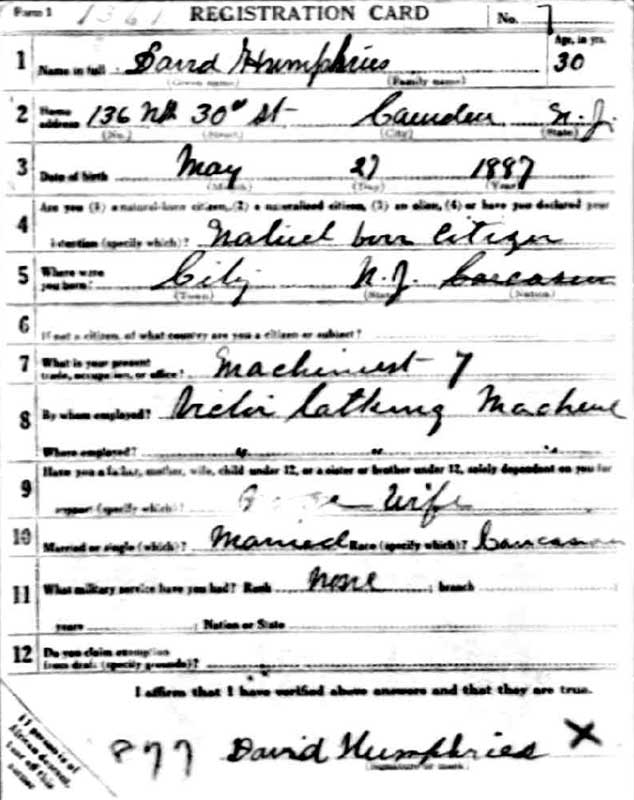 Form 1 1361 REGISTRATION CARD No. 7
1 Name in full David Humphries Age, in yrs. 30
(Given name) (Family name)
2 Home address 136 Nth 30" St Camden N.J.
(No.) (Street) (City) (State)
3 Date of birth May 27 1887
(Month) (Day) (Year)
4 Are you (1) a natural-born citizen, (2) a naturalized citizen, (3) an alien, (4) or have you declared your
intention (specify which)? born citizen
5 Where were you born? City N.J.
(Town) (State) (Nation)
6 If not a citizen, of what country are you a citizen or subject?
7 What is your present trade, occupation, or office? Machinest 7
8 By whom employed? Victor Talking Machine
Where employed? " " "
9 Have you a father, mother, wife, child under 12, or a sister or brother under 12, solely dependent on you for
support (specify which)? Wife
10 Married or single (which)? Married Race (specify which)? Caucasian
11 What military service have you had? Rank None ; branch
years ; Nation or State
12 Do you claim exemption
from draft (specify grounds)?
I affirm that I have verified above answers and that they are true.
If person is of
African descent,
tear off this
corner
877 David Humphries X
(Signature or mark)